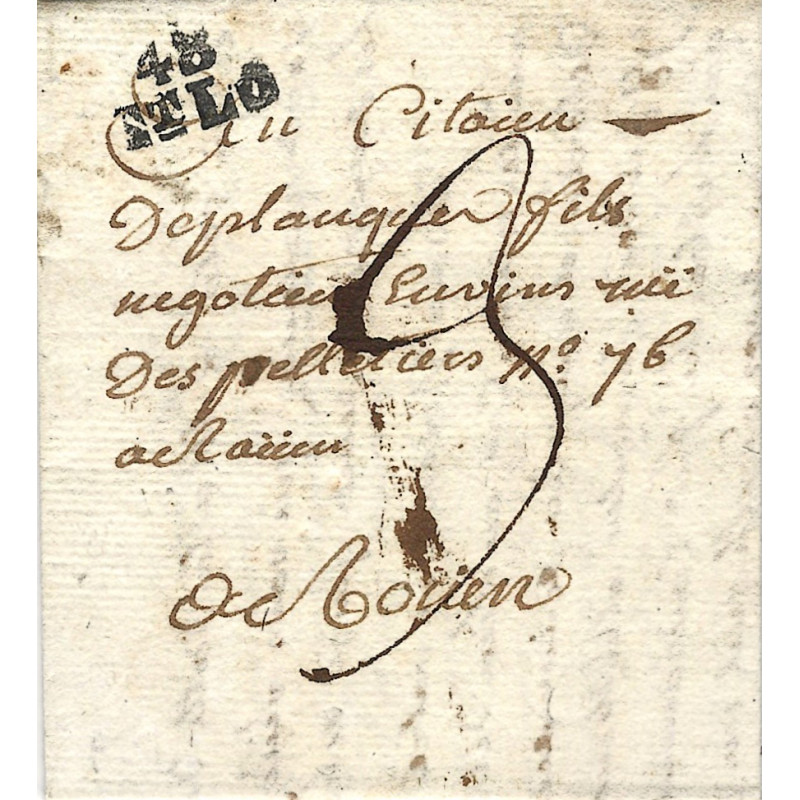 48
ST LO
Au Citoien
Deplanquer fils
negotien Envins rüe
Des pelletiers No 76
a Roüen
a Rouen
3